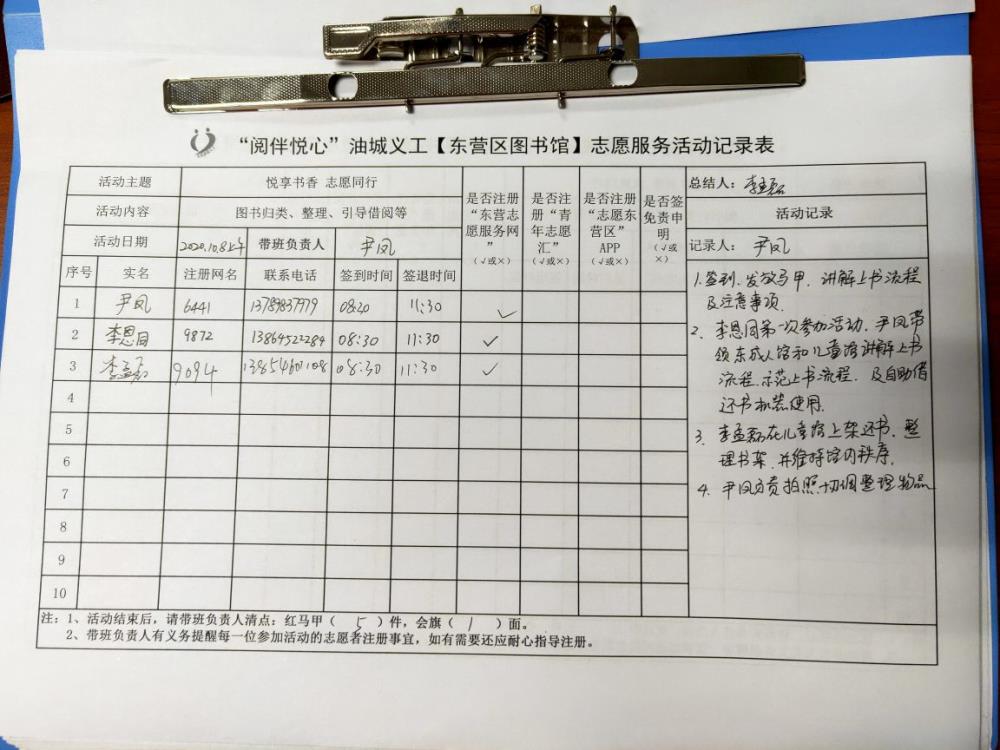 “阅伴悦心”油城义工【东营区图书馆】志愿服务活动记录表
活动主题 悦享书香 志愿同行 是否注册“东营志愿服务网”（√或×） 是否注册“青年志愿汇”（√或×） 是否注册“志愿东营区”APP（√或×） 是否签免责申明（√或×） 总结人：李孟磊
活动内容 图书归类、整理、引导借阅等 活动记录
活动日期 2020.10.8上午 带班负责人 尹凤 记录人：尹凤
序号 实名 注册网名 联系电话 签到时间 签退时间
1 尹凤 6441 13789837979 08:20 11:30 ✓
2 李恩同 9872 13864522284 08:30 11:30 ✓
3 李孟磊 9094 13854601108 08:30 11:30 ✓
4
5
6
7
8
9
10
1.签到、发放马甲、讲解上书流程
及注意事项.
2. 李恩同第一次参加活动，尹凤带
领东成人馆和儿童馆讲解上书
流程、示范上书流程，及自助借
还书机器使用.
3. 李孟磊在儿童馆上架还书、整
理书架，并维持馆内秩序.
4. 尹凤负责拍照、协调整理物品
注：1、活动结束后，请带班负责人清点：红马甲（ 5 ）件，会旗（ 1 ）面。
2、带班负责人有义务提醒每一位参加活动的志愿者注册事宜，如有需要还应耐心指导注册。